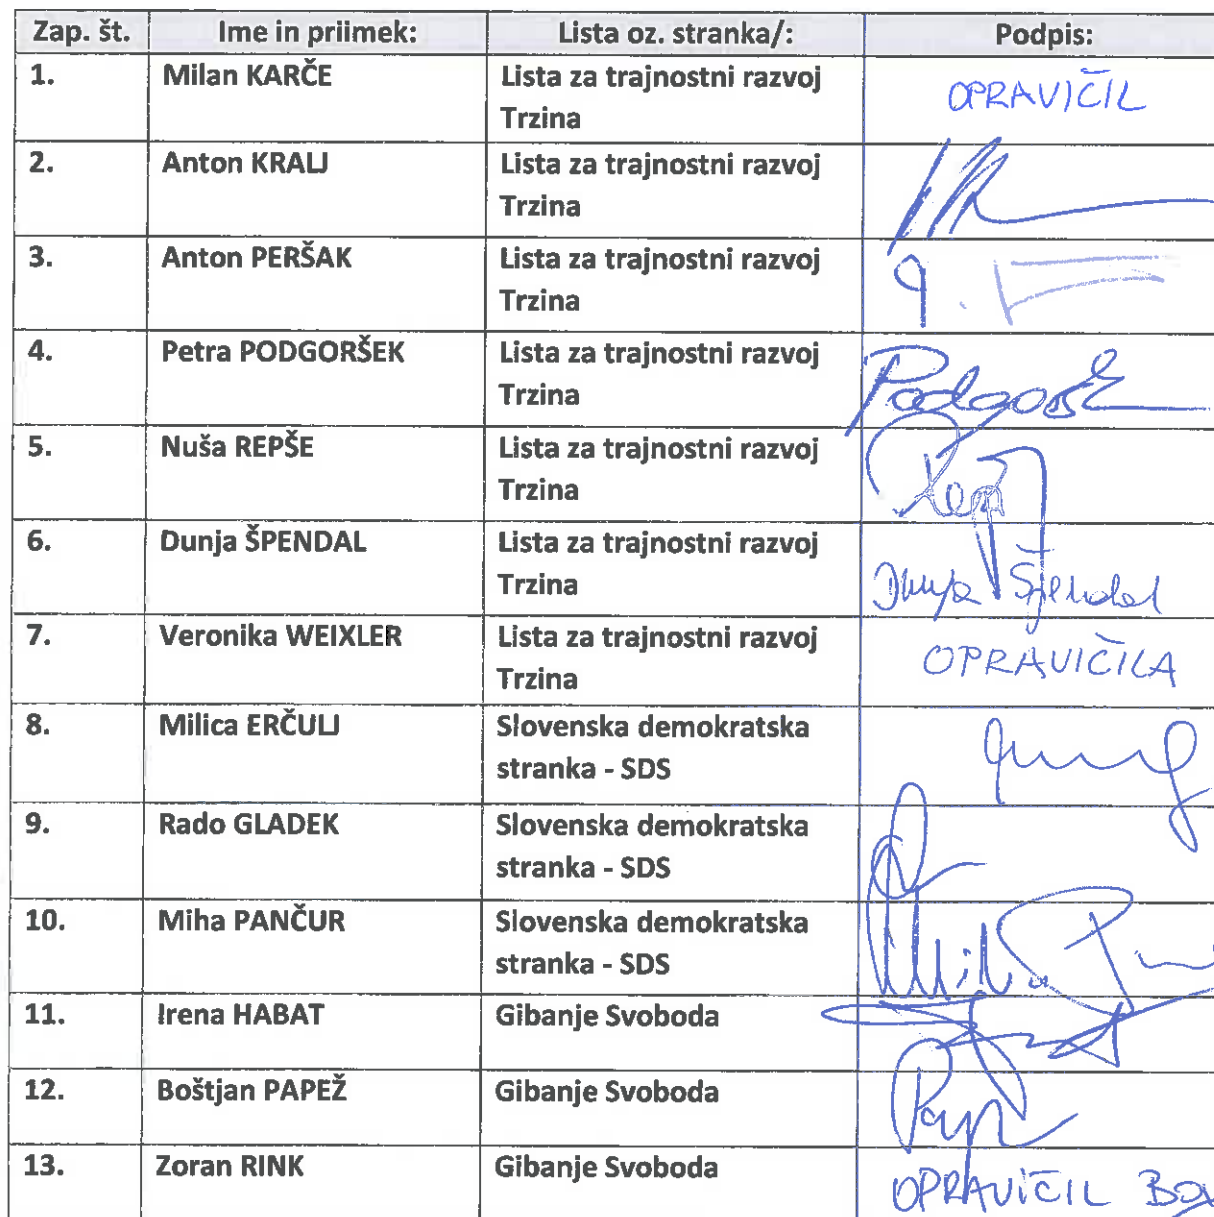 Zap. št. Ime in priimek: Lista oz. stranka/: Podpis:
1. Milan KARČE Lista za trajnostni razvoj OPRAVIČIL
Trzina
2. Anton KRALJ Lista za trajnostni razvoj
Trzina
3. Anton PERŠAK Lista za trajnostni razvoj
Trzina
4. Petra PODGORŠEK Lista za trajnostni razvoj
Trzina
5. Nuša REPŠE Lista za trajnostni razvoj
Trzina
6. Dunja ŠPENDAL Lista za trajnostni razvoj
Trzina Dunja Špendal
7. Veronika WEIXLER Lista za trajnostni razvoj OPRAVIČILA
Trzina
8. Milica ERČULJ Slovenska demokratska
stranka - SDS
9. Rado GLADEK Slovenska demokratska
stranka - SDS
10. Miha PANČUR Slovenska demokratska
stranka - SDS Miha
11. Irena HABAT Gibanje Svoboda
12. Boštjan PAPEŽ Gibanje Svoboda
13. Zoran RINK Gibanje Svoboda OPRAVIČIL